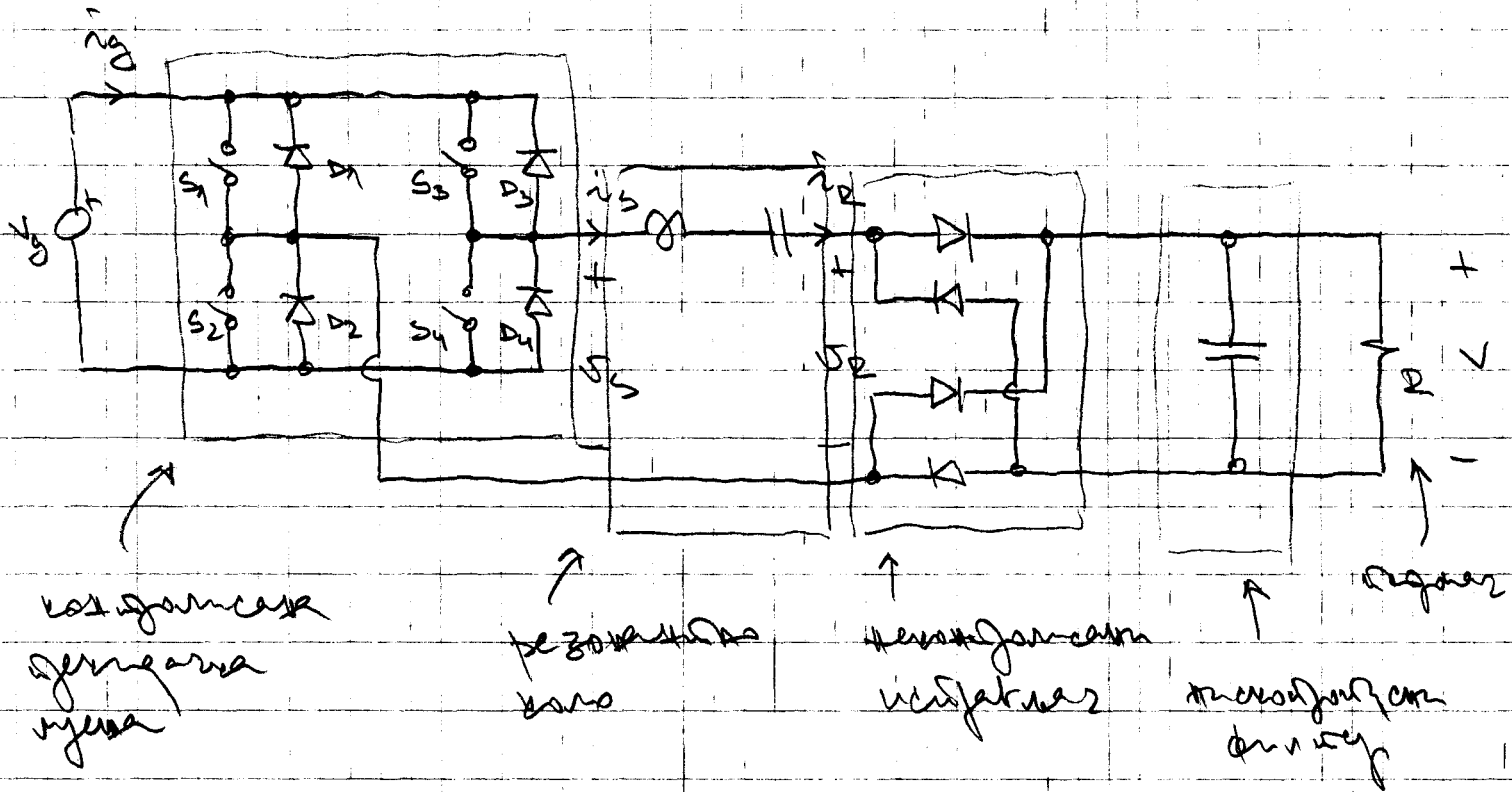 i_g
S1
D1
S3
D3
i_s
i_R
V_g
+
+
+
+
S2
D2
S4
D4
v_s
v_R
R
V
−
−
−
контролисана
прекидачка
мрежа
резонантно
коло
неконтролисани
исправљач
нископропусни
филтер
потрошач
1